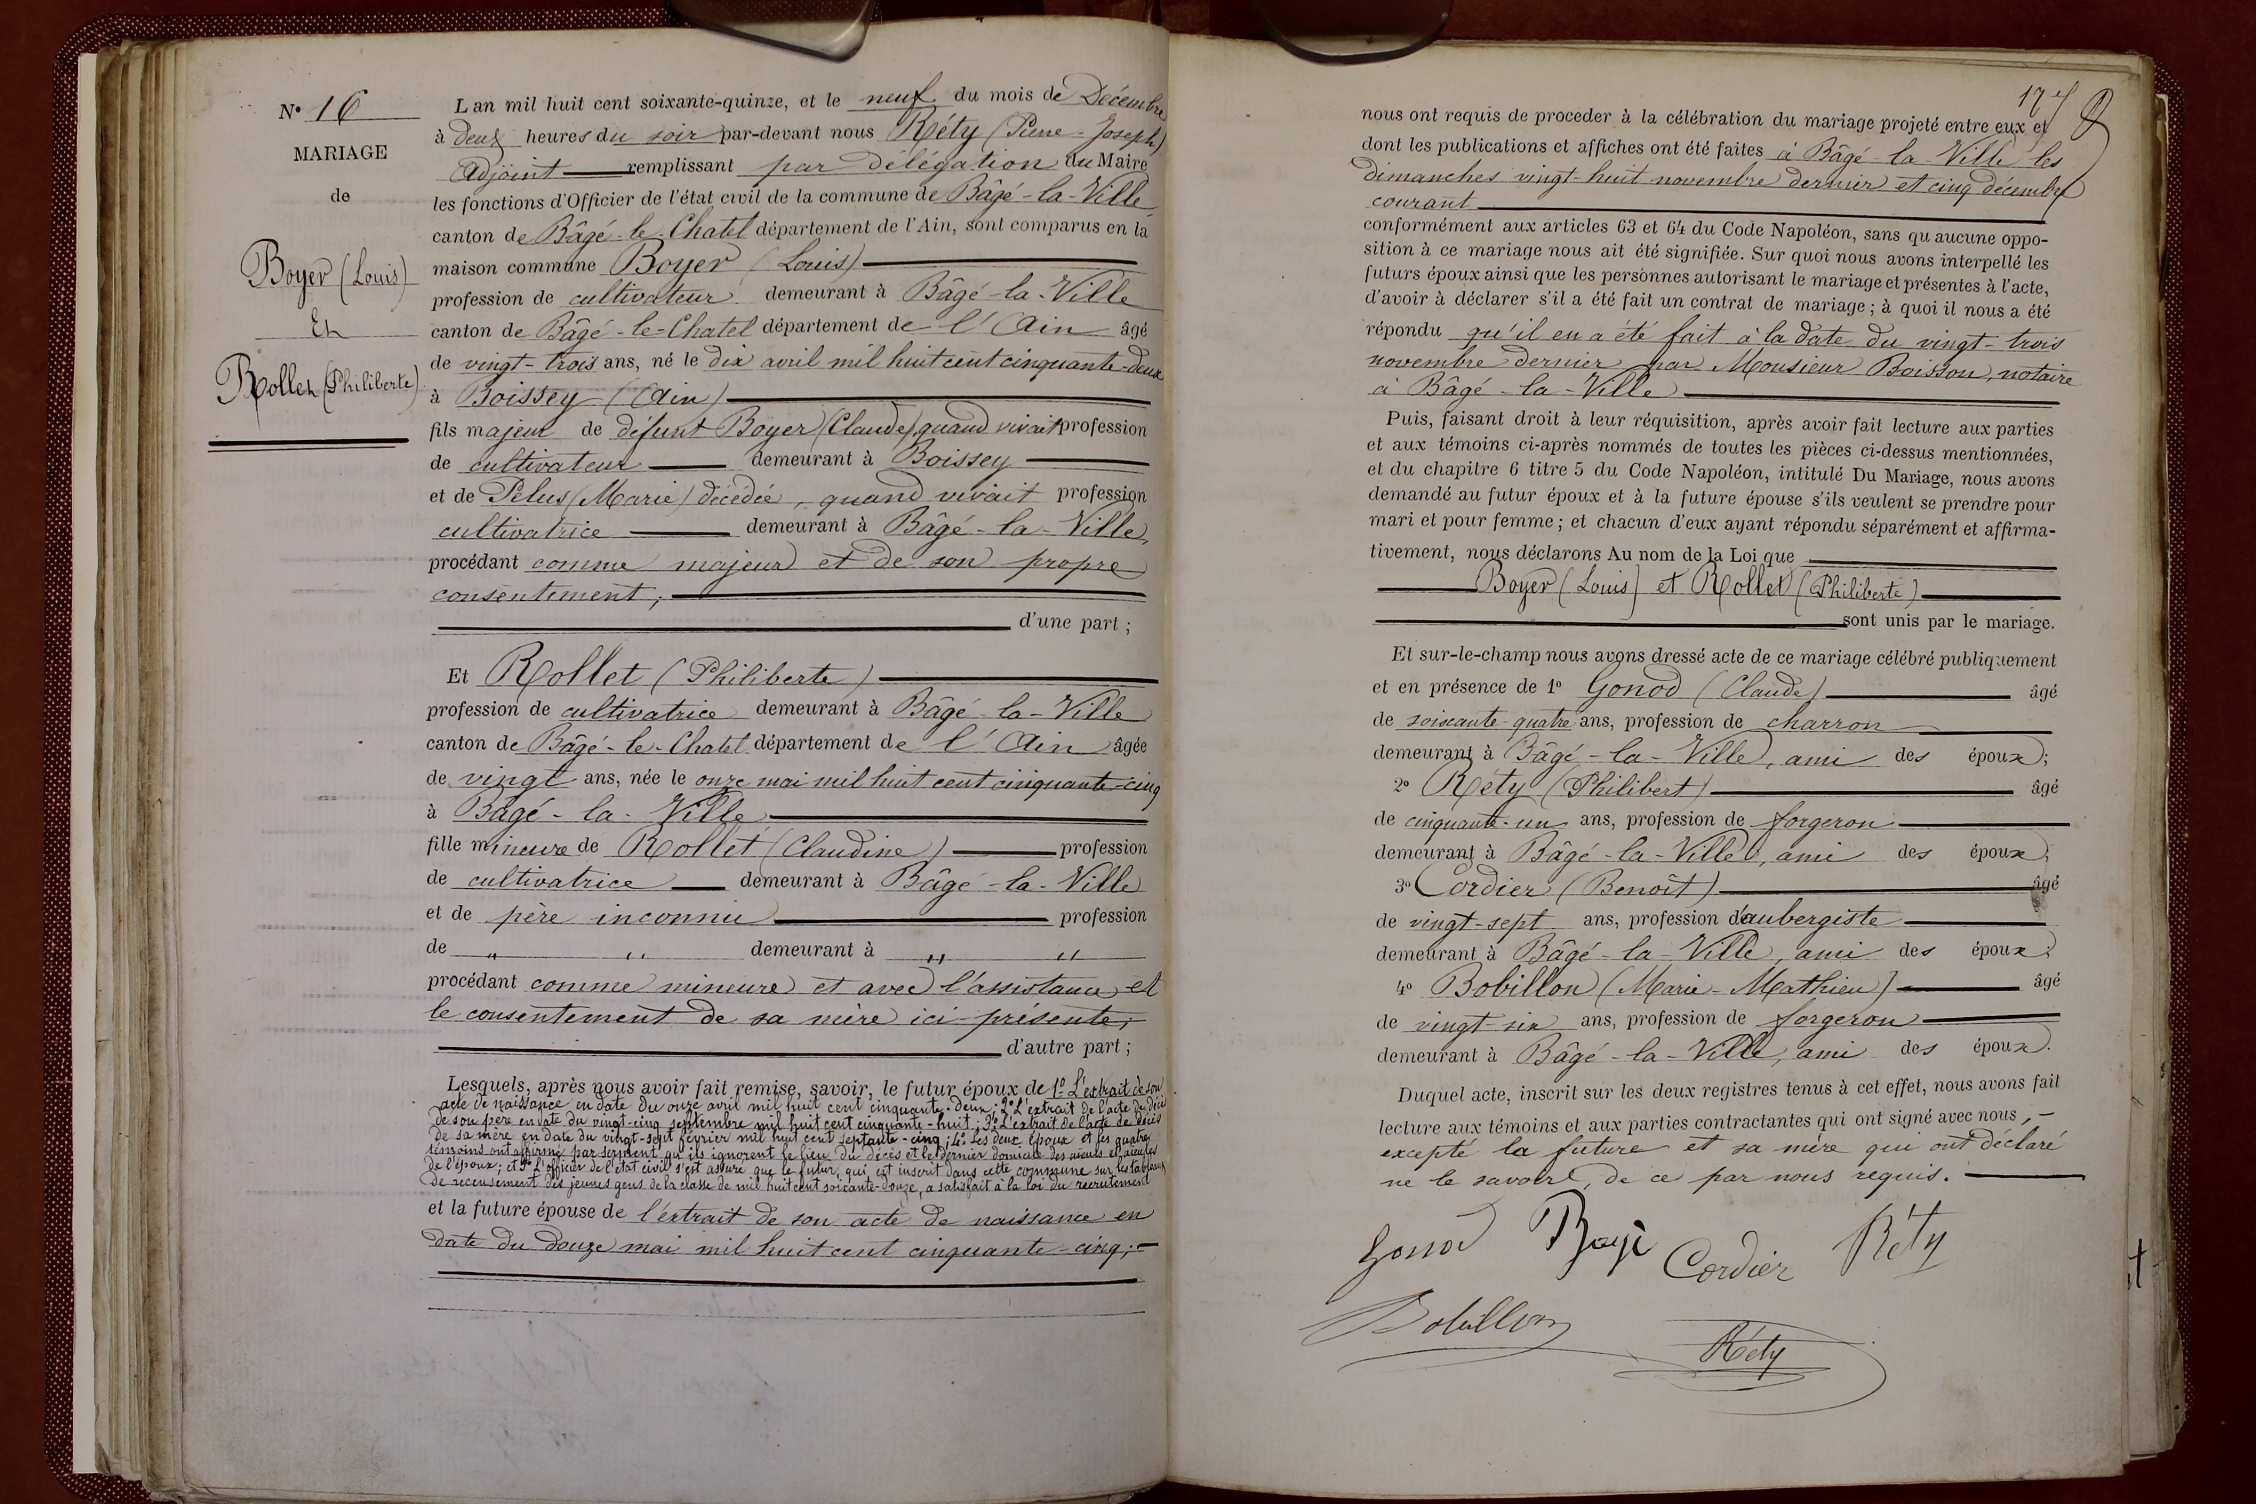 N° 16
MARIAGE
de
Boyer (Louis)
Et
Rollet (Philiberte)
L'an mil huit cent soixante-quinze, et le neuf du mois de Décembre
à deux heures du soir par-devant nous Réty (Pierre-Joseph)
Adjoint remplissant par délégation du Maire
les fonctions d'Officier de l'état civil de la commune de Bâgé-la-Ville
canton de Bâgé-le-Chatel département de l'Ain, sont comparus en la
maison commune Boyer (Louis)
profession de cultivateur demeurant à Bâgé-la-Ville
canton de Bâgé-le-Chatel département de l'Ain âgé
de vingt-trois ans, né le dix avril mil huit cent cinquante-deux
à Boissey (Ain)
fils majeur de défunt Boyer (Claude), quand vivait profession
de cultivateur demeurant à Boissey
et de Pelus (Marie) décédée, quand vivait profession
cultivatrice demeurant à Bâgé-la-Ville,
procédant comme majeur et de son propre
consentement;
d'une part;
Et Rollet (Philiberte)
profession de cultivatrice demeurant à Bâgé-la-Ville
canton de Bâgé-le-Chatel département de l'Ain âgée
de vingt ans, née le onze mai mil huit cent cinquante-cinq
à Bâgé-la-Ville
fille mineure de Rollet (Claudine) profession
de cultivatrice demeurant à Bâgé-la-Ville
et de père inconnu profession
de " " demeurant à " "
procédant comme mineure et avec l'assistance et
le consentement de sa mère ici présente;
d'autre part;
Lesquels, après nous avoir fait remise, savoir, le futur époux de 1° L'extrait de son
acte de naissance en date du onze avril mil huit cent cinquante-deux; 2° L'extrait de l'acte de décès
de son père en date du vingt-cinq septembre mil huit cent cinquante-huit; 3° L'extrait de l'acte de décès
de sa mère en date du vingt-sept février mil huit cent septante-cinq; 4° Les deux époux et les quatre
témoins ont affirmé par serment qu'ils ignorent le lieu du décès et le dernier domicile des aïeuls et aïeules
de l'époux; et 5° L'officier de l'état civil s'est assuré que le futur, qui est inscrit dans cette commune sur les tableaux
de recensement des jeunes gens de la classe de mil huit cent soixante-douze, a satisfait à la loi du recrutement
et la future épouse de l'extrait de son acte de naissance en
date du douze mai mil huit cent cinquante-cinq;
17
nous ont requis de procéder à la célébration du mariage projeté entre eux et
dont les publications et affiches ont été faites à Bâgé-la-Ville les
dimanches vingt-huit novembre dernier et cinq décembre
courant
conformément aux articles 63 et 64 du Code Napoléon, sans qu'aucune oppo-
sition à ce mariage nous ait été signifiée. Sur quoi nous avons interpellé les
futurs époux ainsi que les personnes autorisant le mariage et présentes à l'acte,
d'avoir à déclarer s'il a été fait un contrat de mariage; à quoi il nous a été
répondu qu'il en a été fait à la date du vingt-trois
novembre dernier par Monsieur Boisson, notaire
à Bâgé-la-Ville
Puis, faisant droit à leur réquisition, après avoir fait lecture aux parties
et aux témoins ci-après nommés de toutes les pièces ci-dessus mentionnées,
et du chapitre 6 titre 5 du Code Napoléon, intitulé Du Mariage, nous avons
demandé au futur époux et à la future épouse s'ils veulent se prendre pour
mari et pour femme; et chacun d'eux ayant répondu séparément et affirma-
tivement, nous déclarons Au nom de la Loi que
Boyer (Louis) et Rollet (Philiberte)
sont unis par le mariage.
Et sur-le-champ nous avons dressé acte de ce mariage célébré publiquement
et en présence de 1° Gonod (Claude) âgé
de soixante-quatre ans, profession de charron
demeurant à Bâgé-la-Ville, ami des époux;
2° Réty (Philibert) âgé
de cinquante-un ans, profession de forgeron
demeurant à Bâgé-la-Ville, ami des époux;
3° Cordier (Benoît) âgé
de vingt-sept ans, profession d'aubergiste
demeurant à Bâgé-la-Ville, ami des époux;
4° Bobillon (Marie-Mathieu) âgé
de vingt-six ans, profession de forgeron
demeurant à Bâgé-la-Ville, ami des époux.
Duquel acte, inscrit sur les deux registres tenus à cet effet, nous avons fait
lecture aux témoins et aux parties contractantes qui ont signé avec nous,
excepté la future et sa mère qui ont déclaré
ne le savoir, de ce par nous requis.
Gonod Cordier Réty
Bobillon
Réty